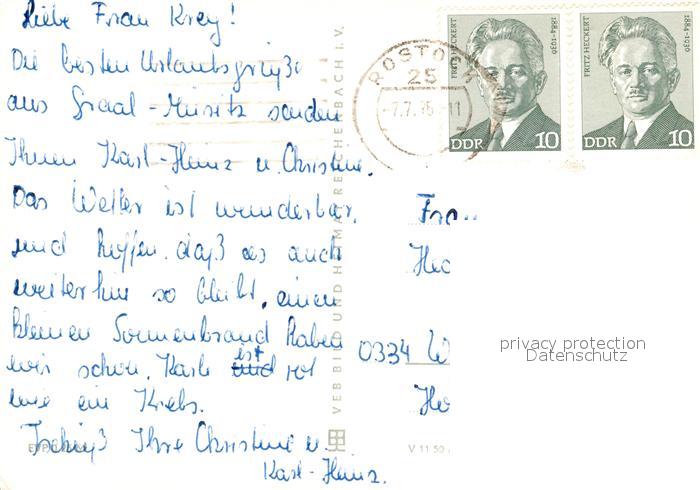 Liebe Frau Krey!
Die besten Urlaubsgrüße
aus Graal-Müritz senden
Ihnen Karl-Heinz u. Christine.
Das Wetter ist wunderbar,
und hoffen, daß es auch
weiterhin so bleibt, einen
kleinen Sonnenbrand haben
wir schon. Karli ist rot
wie ein Krebs.
Tschüß Ihre Christine u.
Karl-Heinz.
VEB BILD UND HEIMAT REICHENBACH I. V.
V 11 50
ROSTOCK
25
-7.7.75-11
FRITZ HECKERT
1884-1936
DDR 10
FRITZ HECKERT
1884-1936
DDR 10
0334
privacy protection
Datenschutz